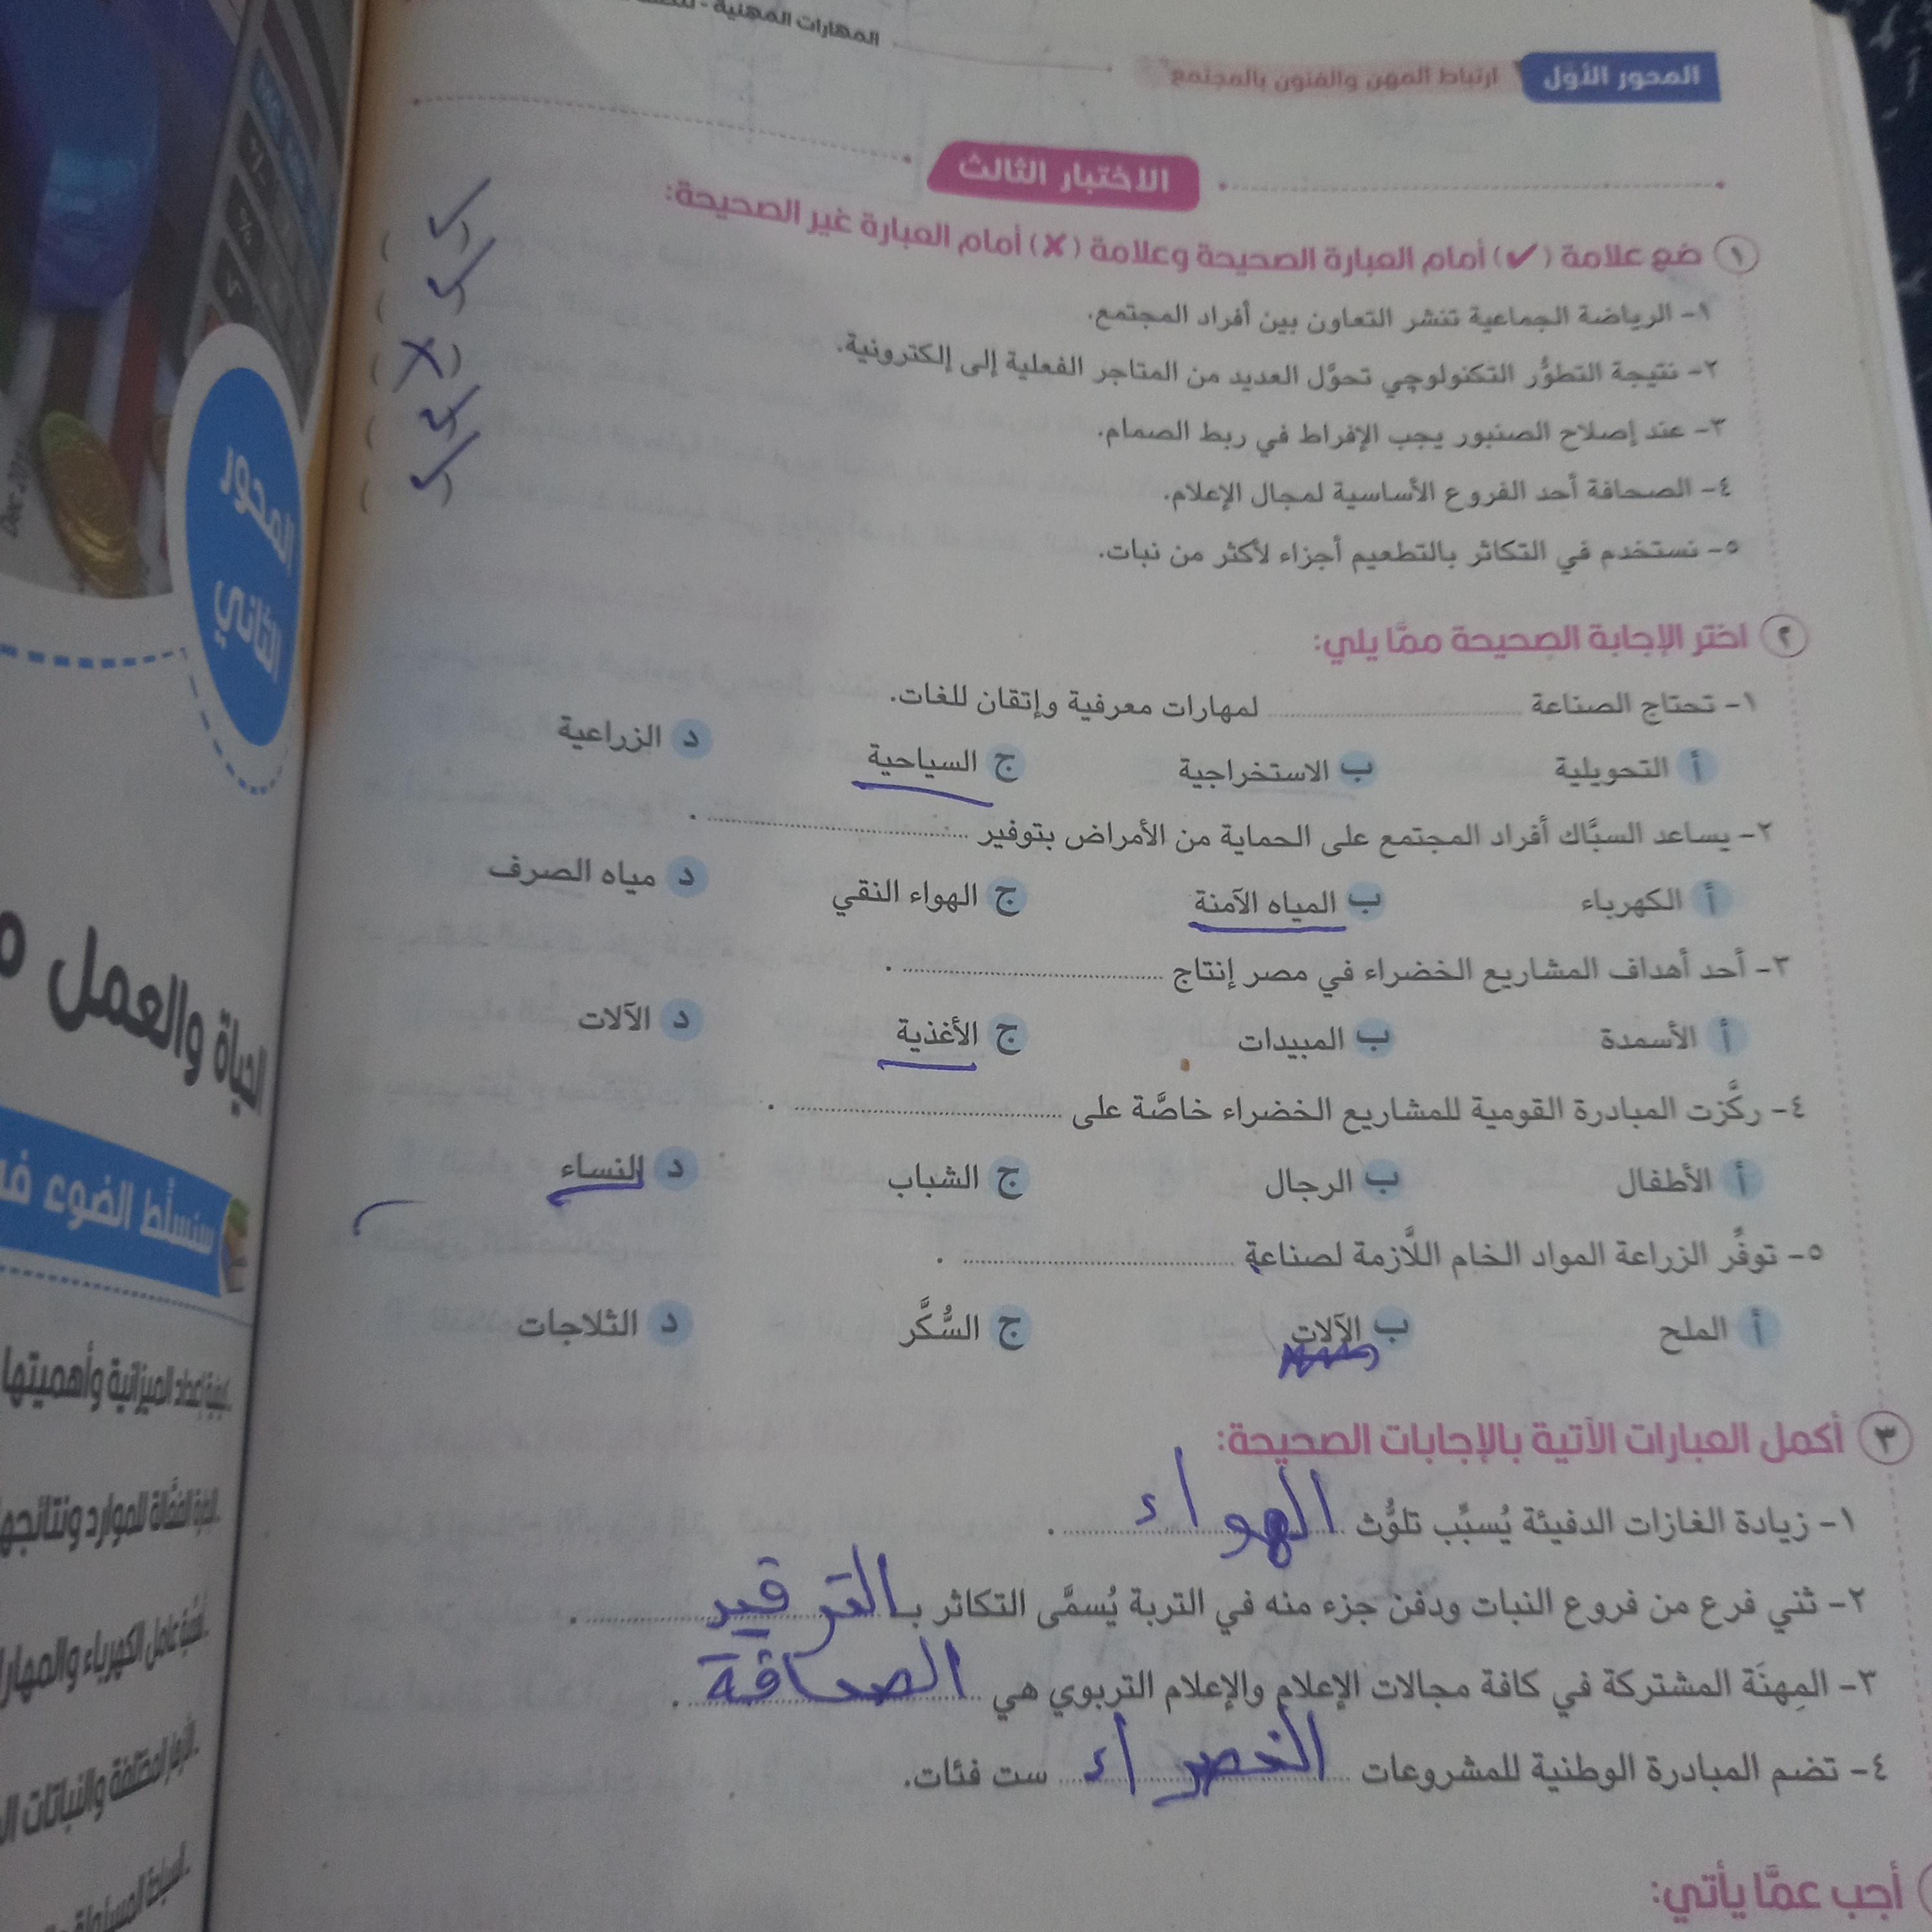 المهارات المهنية -
المحور الأول ارتباط المهن والفنون بالمجتمع
الاختبار الثالث
١ ضع علامة (✔) أمام العبارة الصحيحة وعلامة (✘) أمام العبارة غير الصحيحة:
١- الرياضة الجماعية تنشر التعاون بين أفراد المجتمع. (✓)
٢- نتيجة التطوُّر التكنولوچي تحوَّل العديد من المتاجر الفعلية إلى إلكترونية. (✓)
٣- عند إصلاح الصنبور يجب الإفراط في ربط الصمام. (X)
٤- الصحافة أحد الفروع الأساسية لمجال الإعلام. (✓)
٥- نستخدم في التكاثر بالتطعيم أجزاء لأكثر من نبات. (✓)
٢ اختر الإجابة الصحيحة ممَّا يلي:
١- تحتاج الصناعة .......... لمهارات معرفية وإتقان للغات.
أ التحويلية ب الاستخراجية ج السياحية د الزراعية
٢- يساعد السبَّاك أفراد المجتمع على الحماية من الأمراض بتوفير .......... .
أ الكهرباء ب المياه الآمنة ج الهواء النقي د مياه الصرف
٣- أحد أهداف المشاريع الخضراء في مصر إنتاج .......... .
أ الأسمدة ب المبيدات ج الأغذية د الآلات
٤- ركَّزت المبادرة القومية للمشاريع الخضراء خاصَّة على .......... .
أ الأطفال ب الرجال ج الشباب د النساء
٥- توفِّر الزراعة المواد الخام اللَّازمة لصناعة .......... .
أ الملح ب الآلات ج السُّكَّر د الثلاجات
٣ أكمل العبارات الآتية بالإجابات الصحيحة:
١- زيادة الغازات الدفيئة يُسبِّب تلوُّث الهواء .
٢- ثني فرع من فروع النبات ودفن جزء منه في التربة يُسمَّى التكاثر بـ الترقيد .
٣- المِهنَة المشتركة في كافة مجالات الإعلام والإعلام التربوي هي الصحافة .
٤- تضم المبادرة الوطنية للمشروعات الخضراء ست فئات.
أجب عمَّا يأتي:
المحور
الثاني
Dec 20
الحياة والعمل
سنسلِّط الضوء
إعداد الميزانية وأهميتها